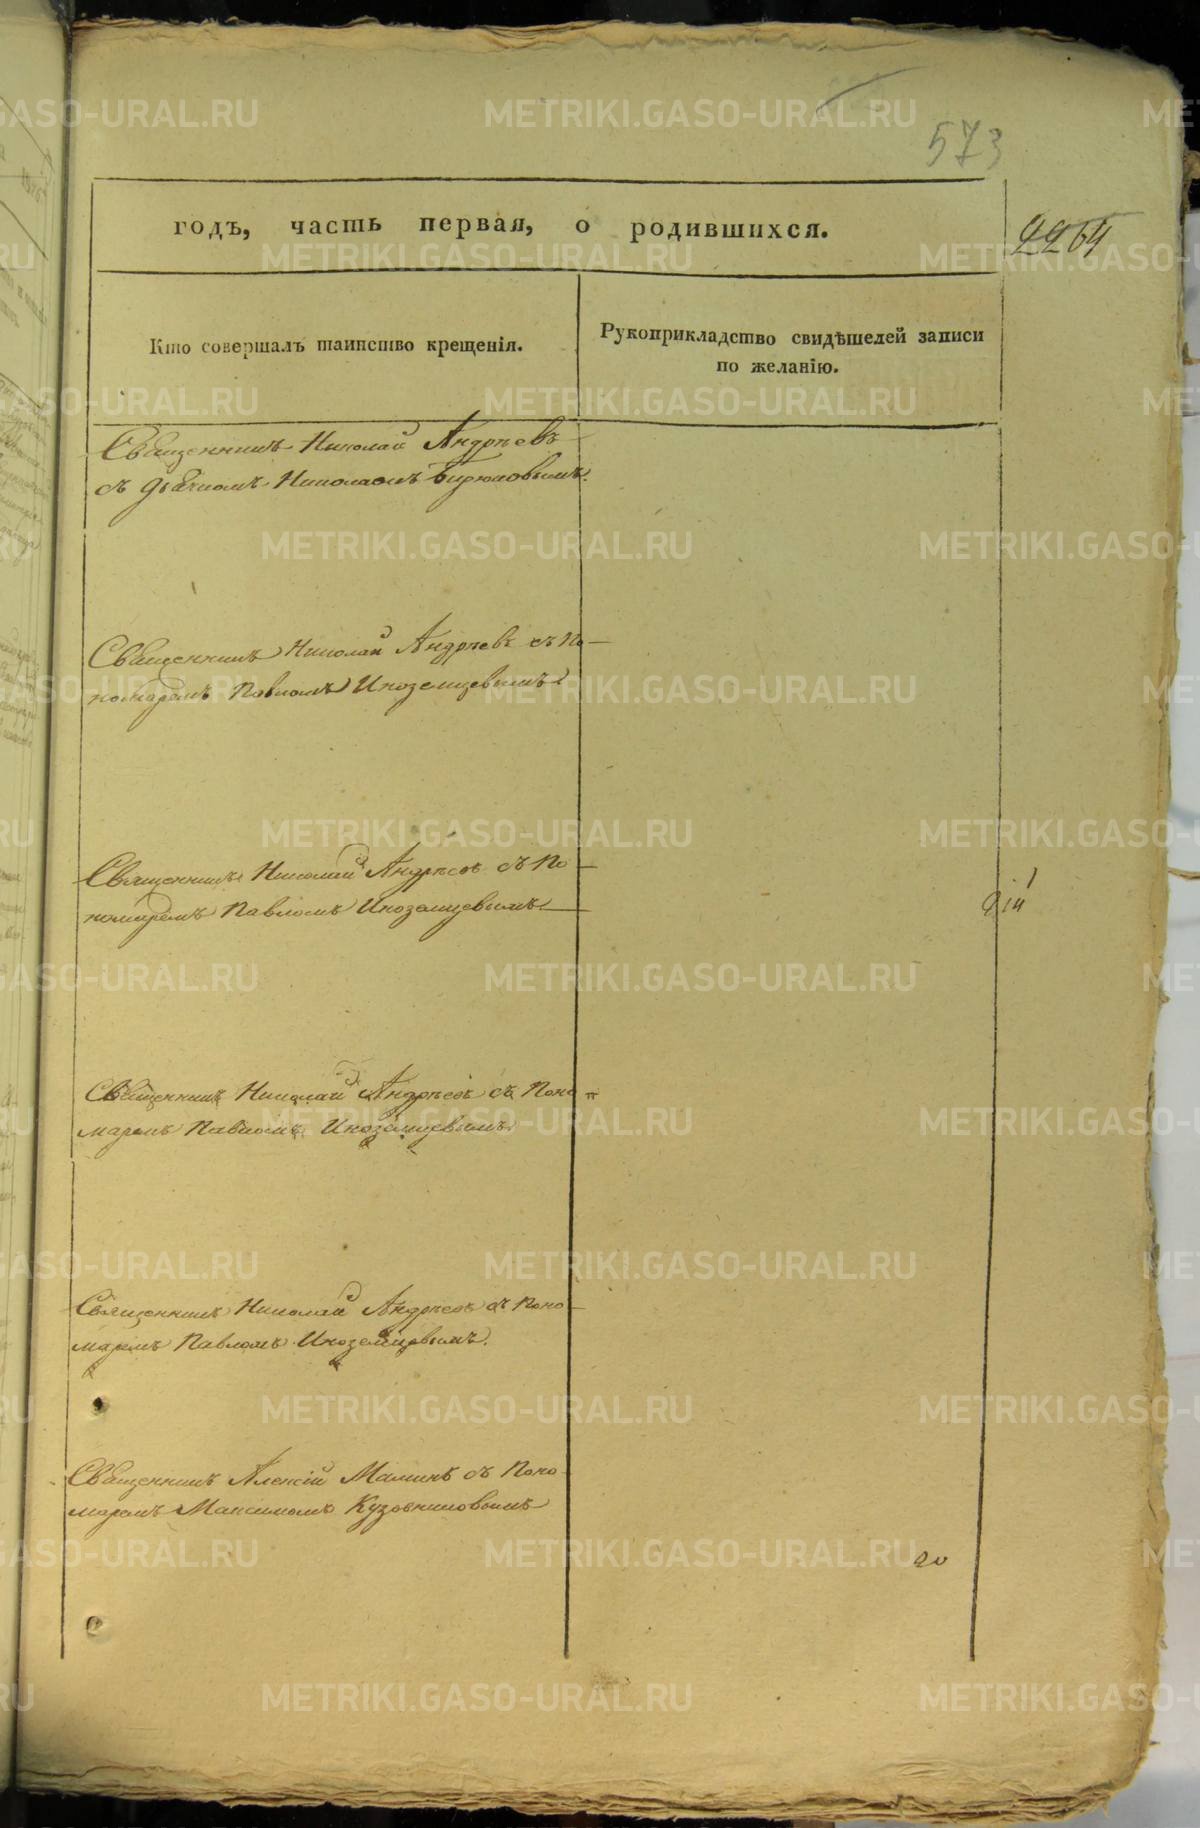 573
годъ, часть первая, о родившихся.
2264
Кто совершалъ таинство крещенія.
Рукоприкладство свидѣтелей записи
по желанію.
Священникъ Николай Андрѣевъ
съ дьячкомъ Николаемъ Бирюковымъ.
Священникъ Николай Андрѣевъ съ По-
номаремъ Павломъ Иноземцевымъ
Священникъ Николай Андрѣевъ съ По-
номаремъ Павломъ Иноземцевымъ
Священникъ Николай Андрѣевъ съ Поно-
маремъ Павломъ Иноземцевымъ.
Священникъ Николай Андрѣевъ съ Поно-
маремъ Павломъ Иноземцевымъ.
Священникъ Алексій Маминъ съ Поно-
маремъ Максимомъ Кузовниковымъ
METRIKI.GASO-URAL.RU